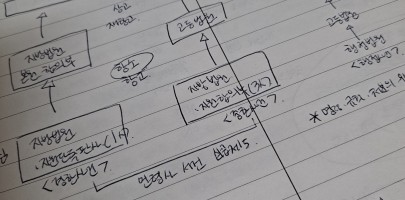 상고
재항고
고등법원
고등법원
지방법원
본원 합의부
항소
항고
행정법원
<행정사건>
지방법원
지원합의부(3人)
<중한사건>
지방법원
지원단독판사(1人)
<경한사건>
민형사 사건 심급제도